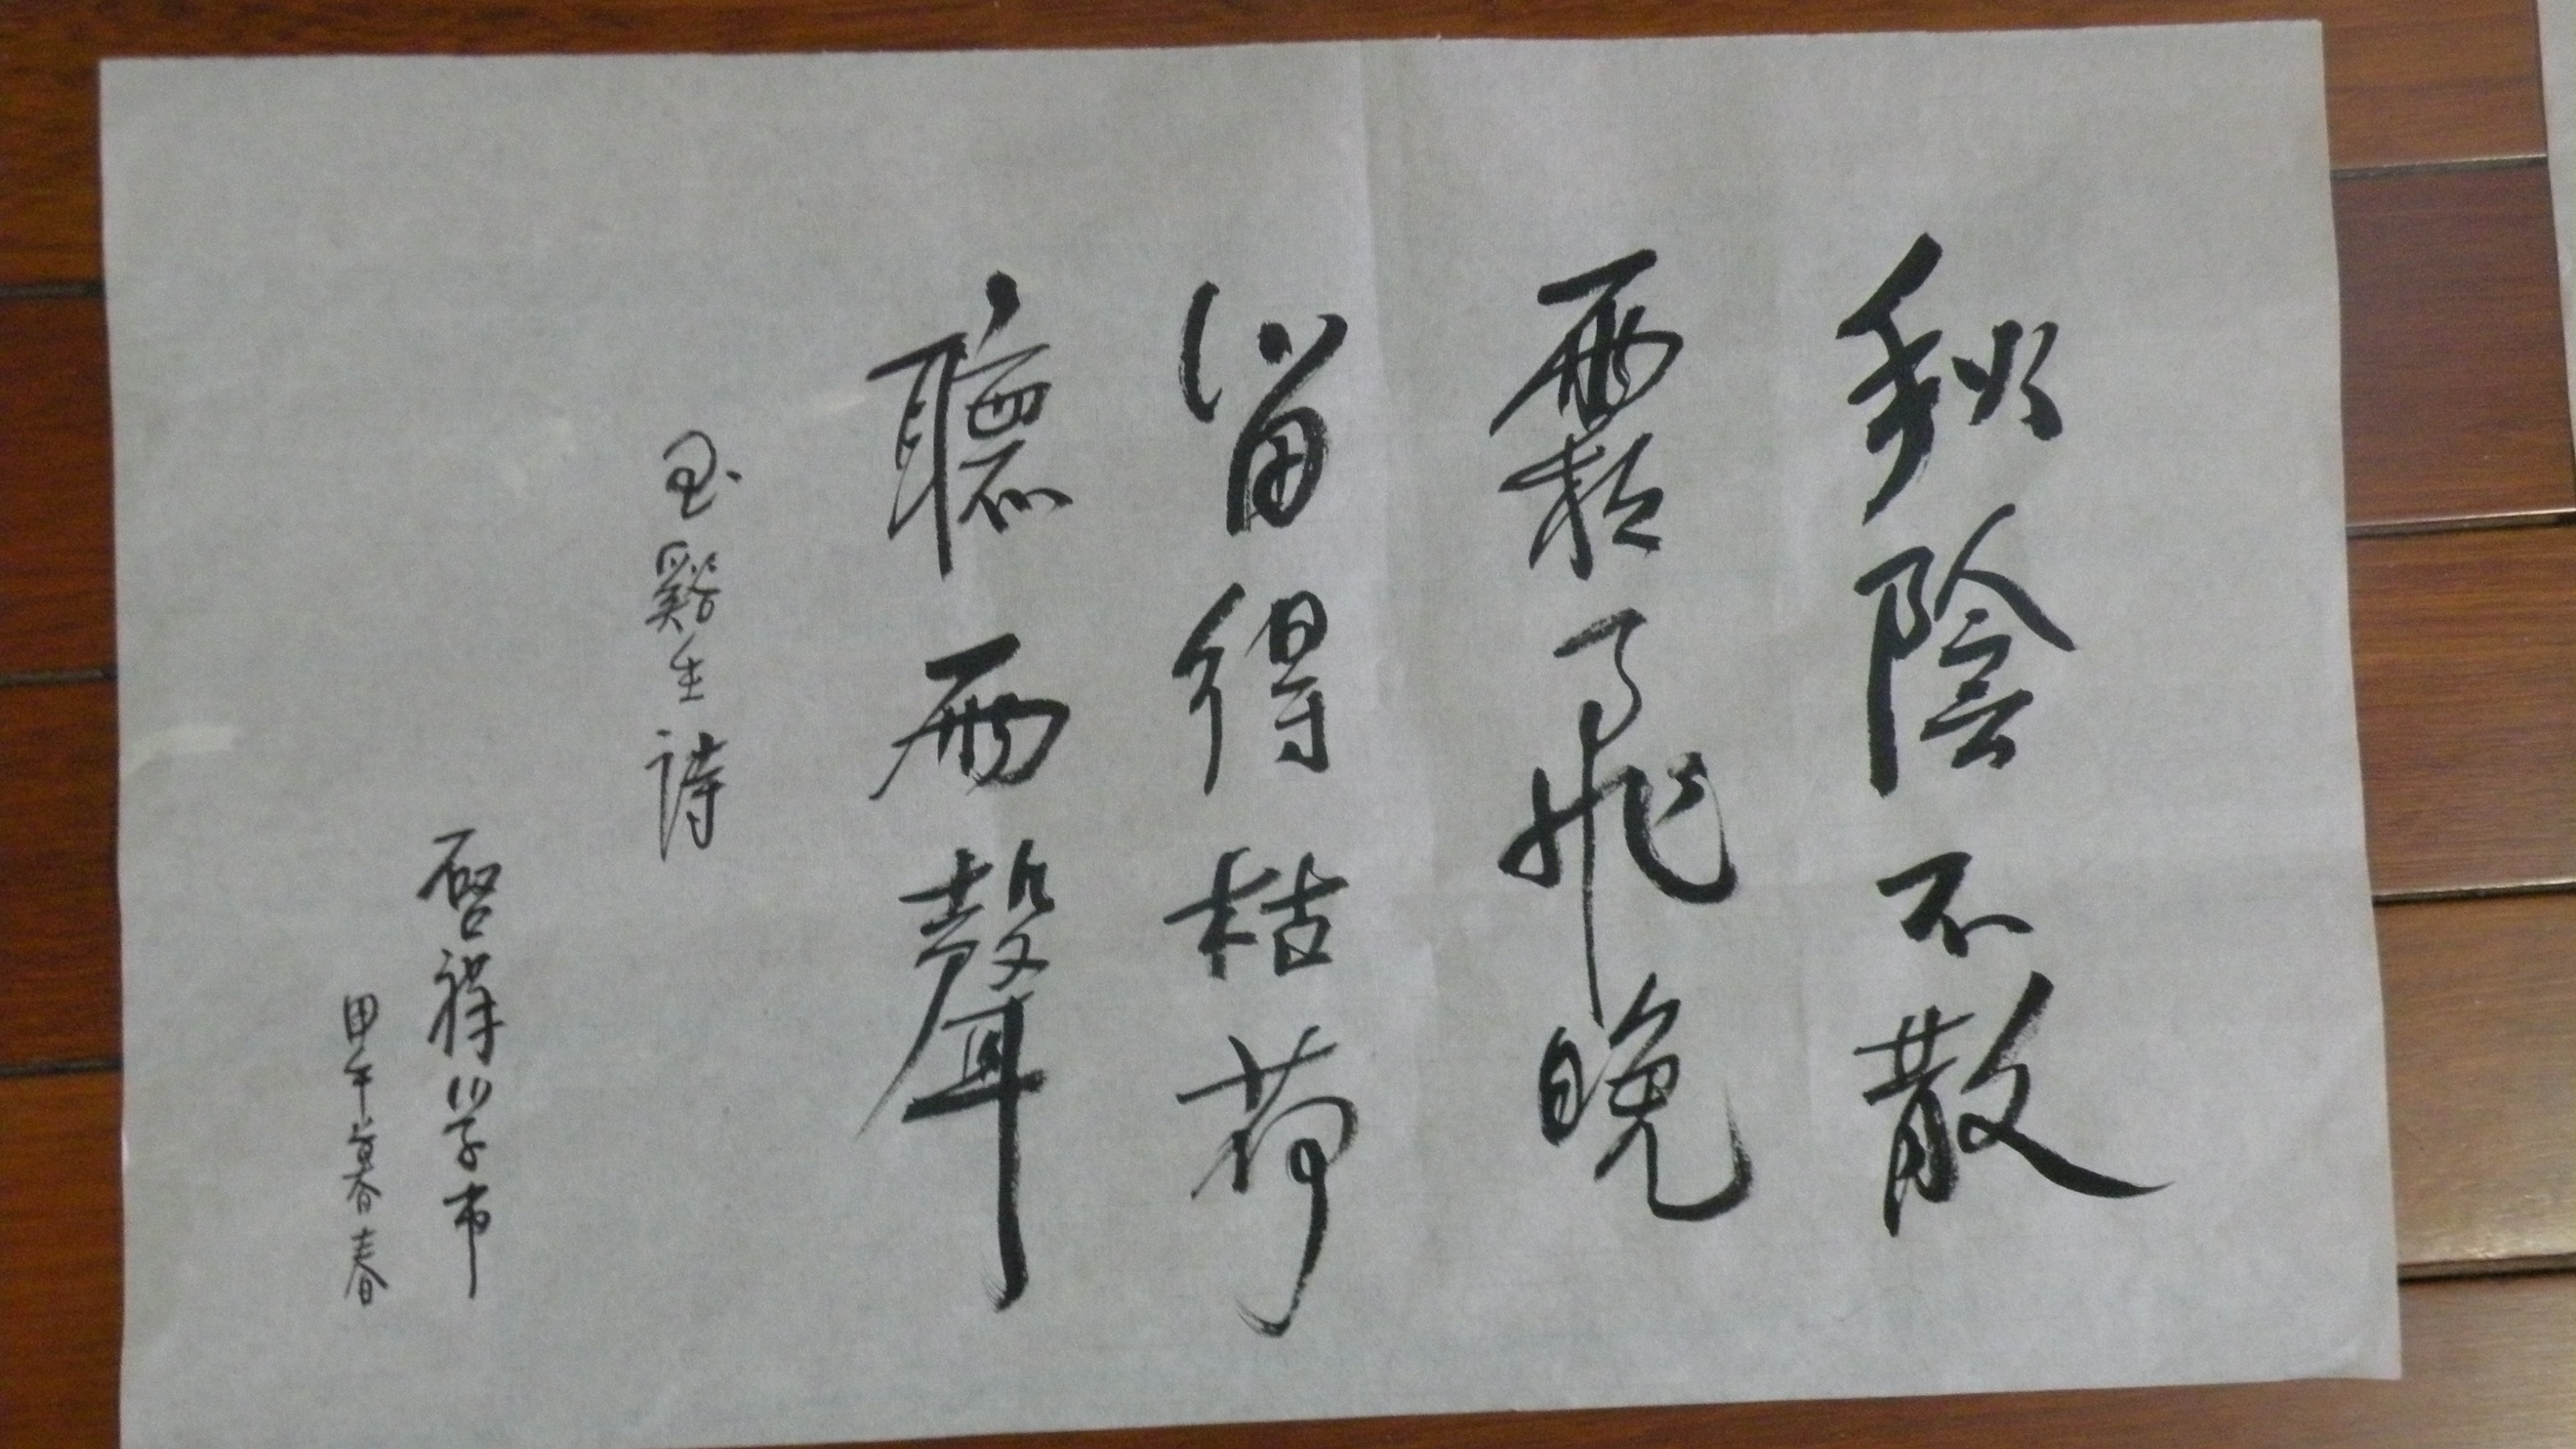 秋陰不散
霜飛晚
留得枯荷
聽雨聲
玉谿生詩
啓祥學書
甲午暮春